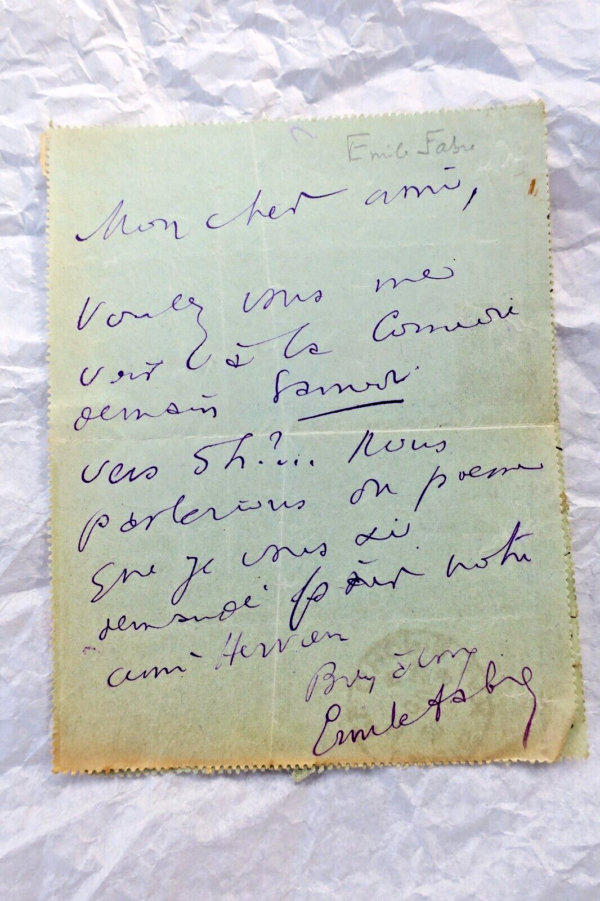 Emile Fabre
Mon cher ami,
Voulez vous me
voir à la Comédie
demain Samedi
vers 5h.?... Nous
parlerions du poème
que je vous ai
demandé pour notre
ami Hervieu
Bien à vous
Emile Fabre